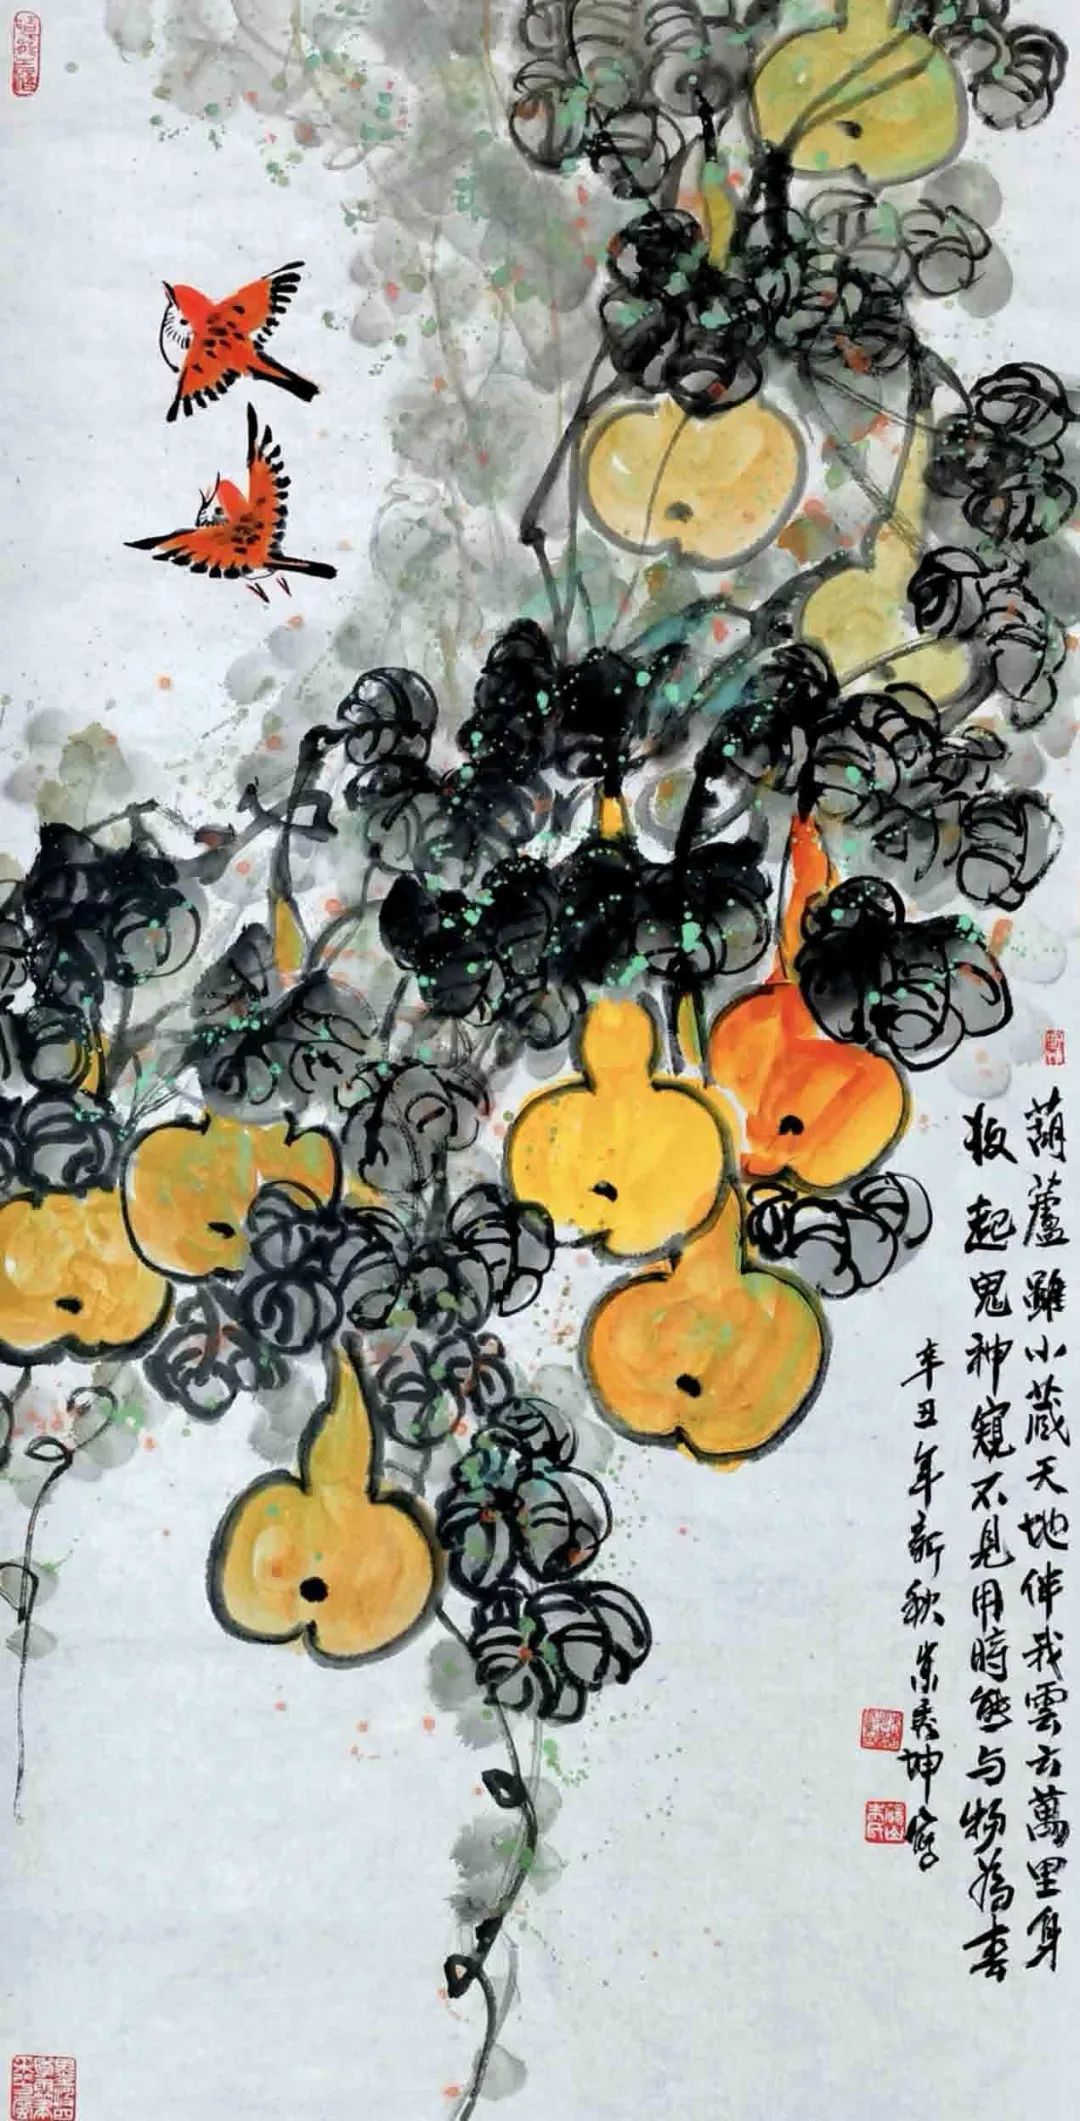 葫蘆雖小藏天地伴我雲云萬里身
收起鬼神窺不見用時能与物為春
辛丑年新秋朱秀坤寫